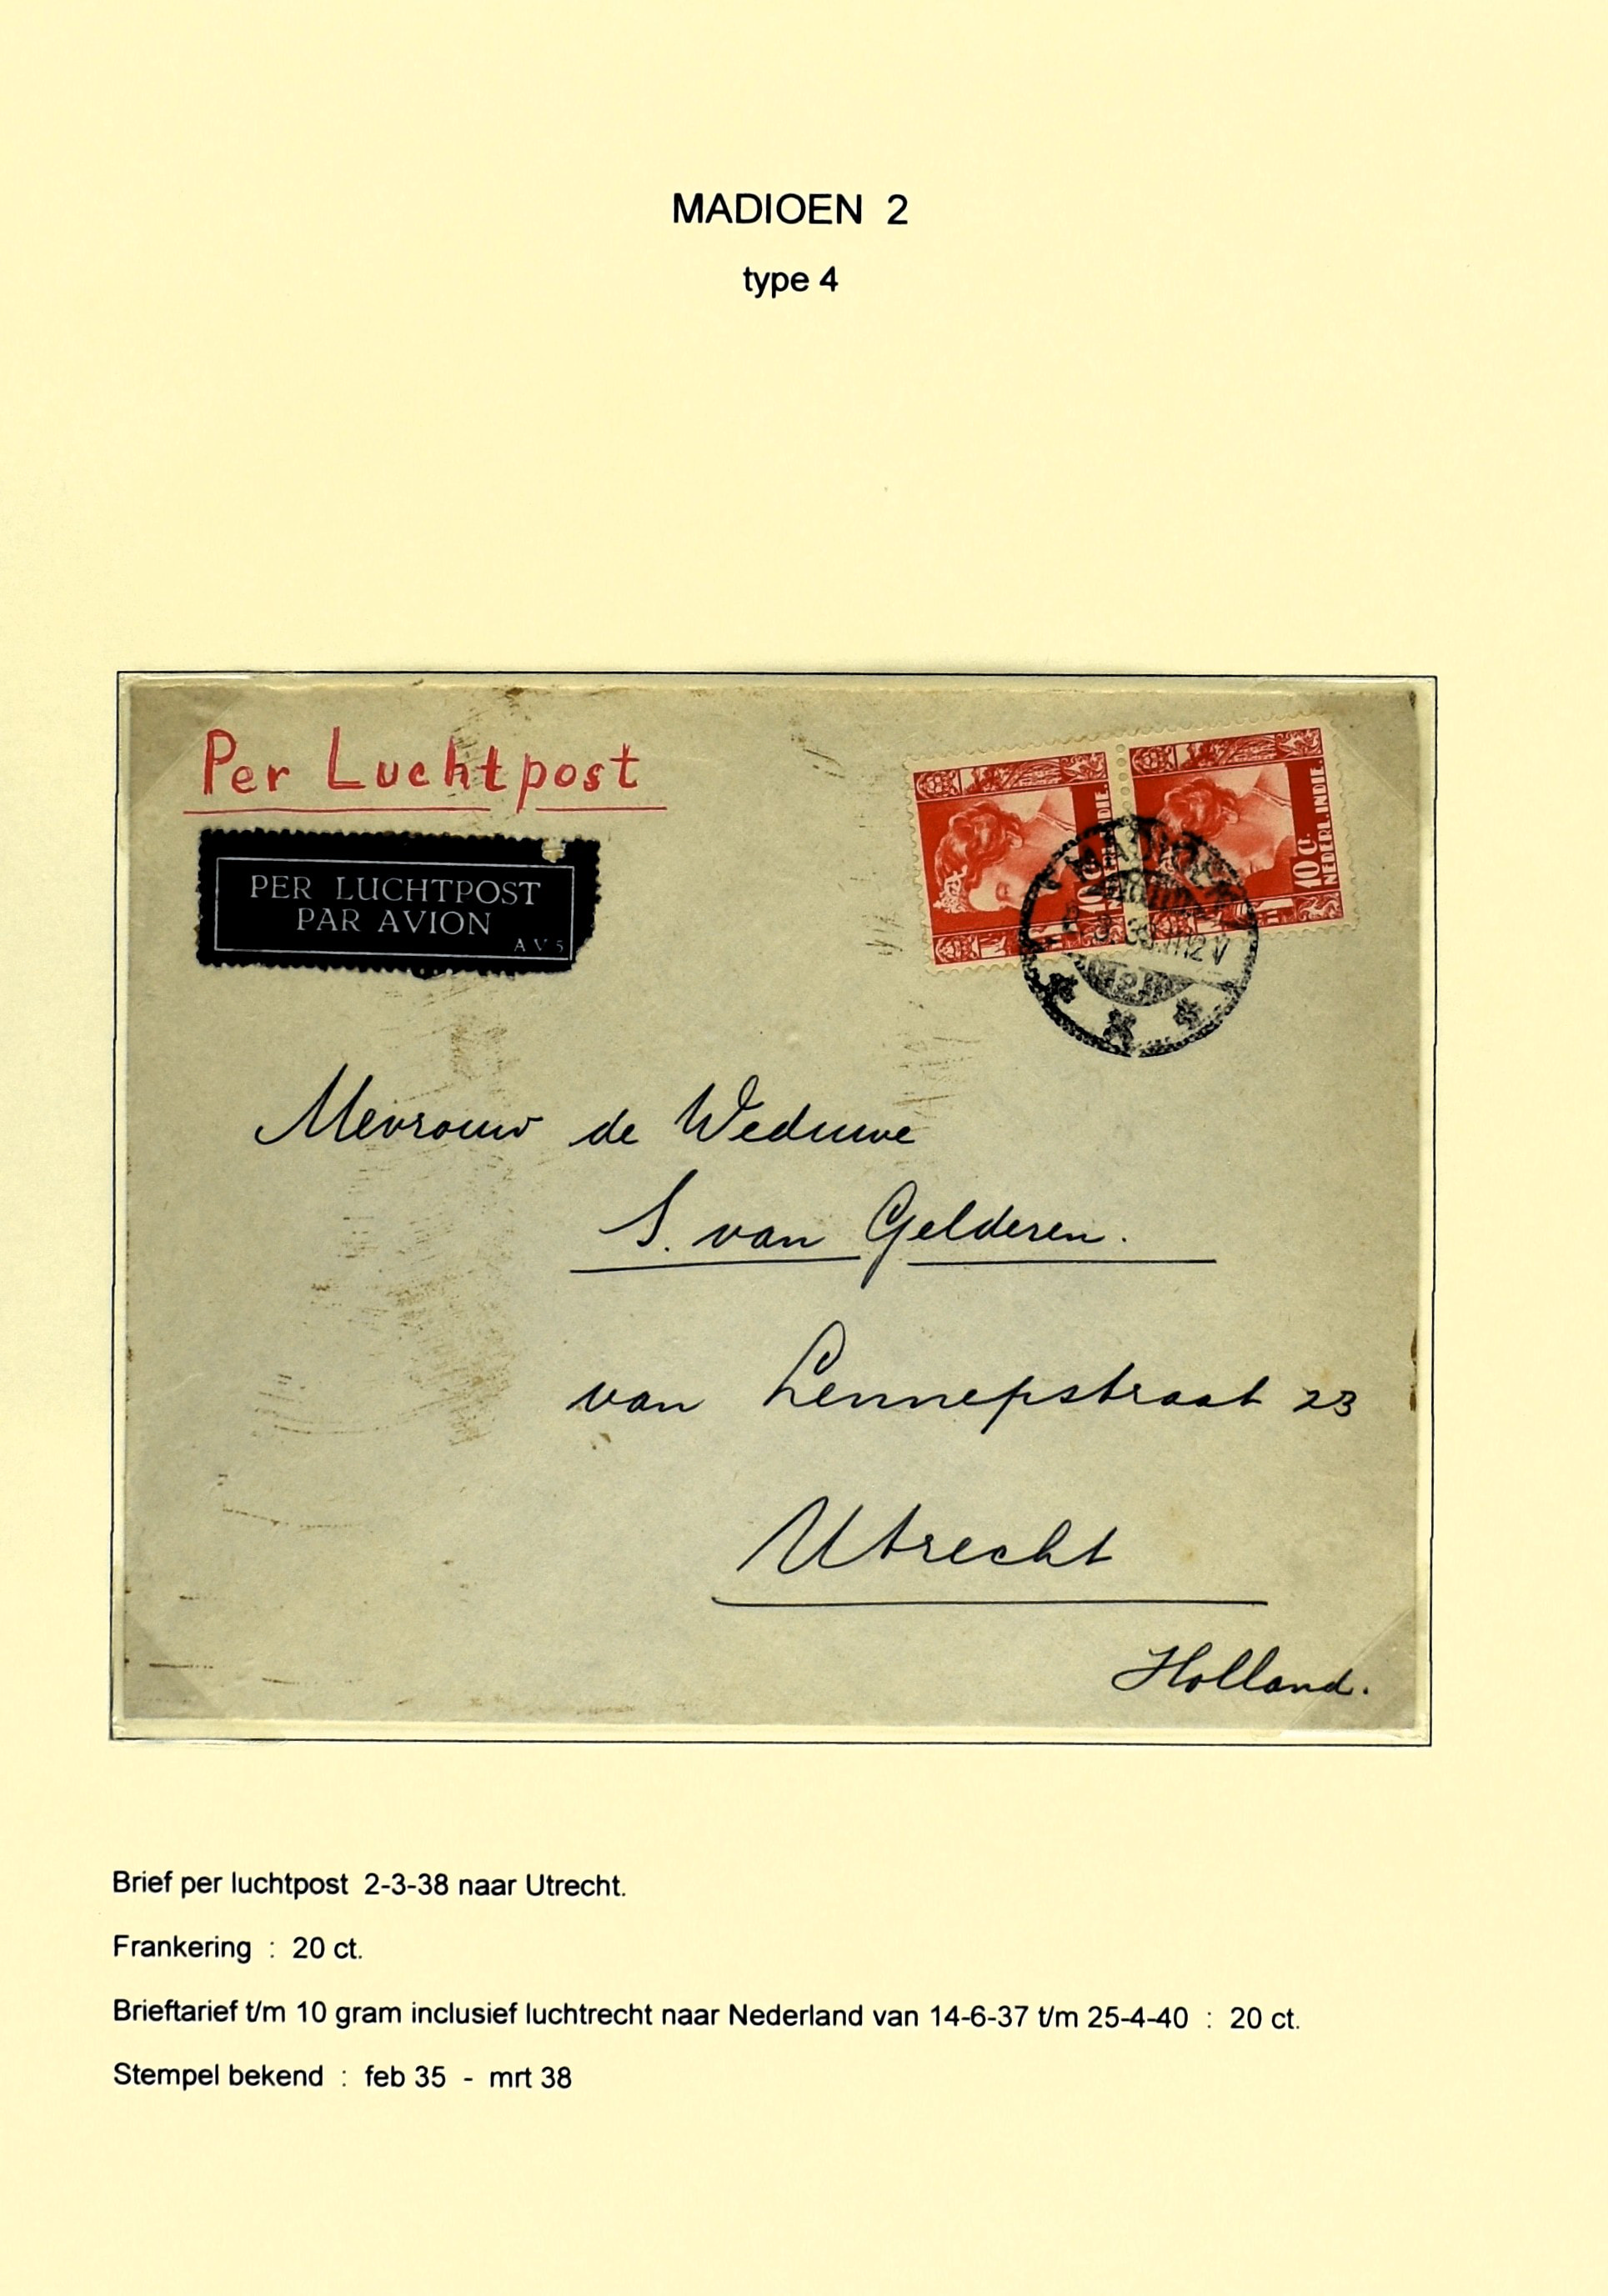 MADIOEN 2
type 4
Per Luchtpost
PER LUCHTPOST
PAR AVION
AV5
10 C.
10 C.
NEDERL. INDIE.
MADIOEN
2
Mevrouw de Weduwe
S. van Gelderen.
van Lennepstraat 23
Utrecht
Holland.
Brief per luchtpost 2-3-38 naar Utrecht.
Frankering : 20 ct.
Brieftarief t/m 10 gram inclusief luchtrecht naar Nederland van 14-6-37 t/m 25-4-40 : 20 ct.
Stempel bekend : feb 35 - mrt 38